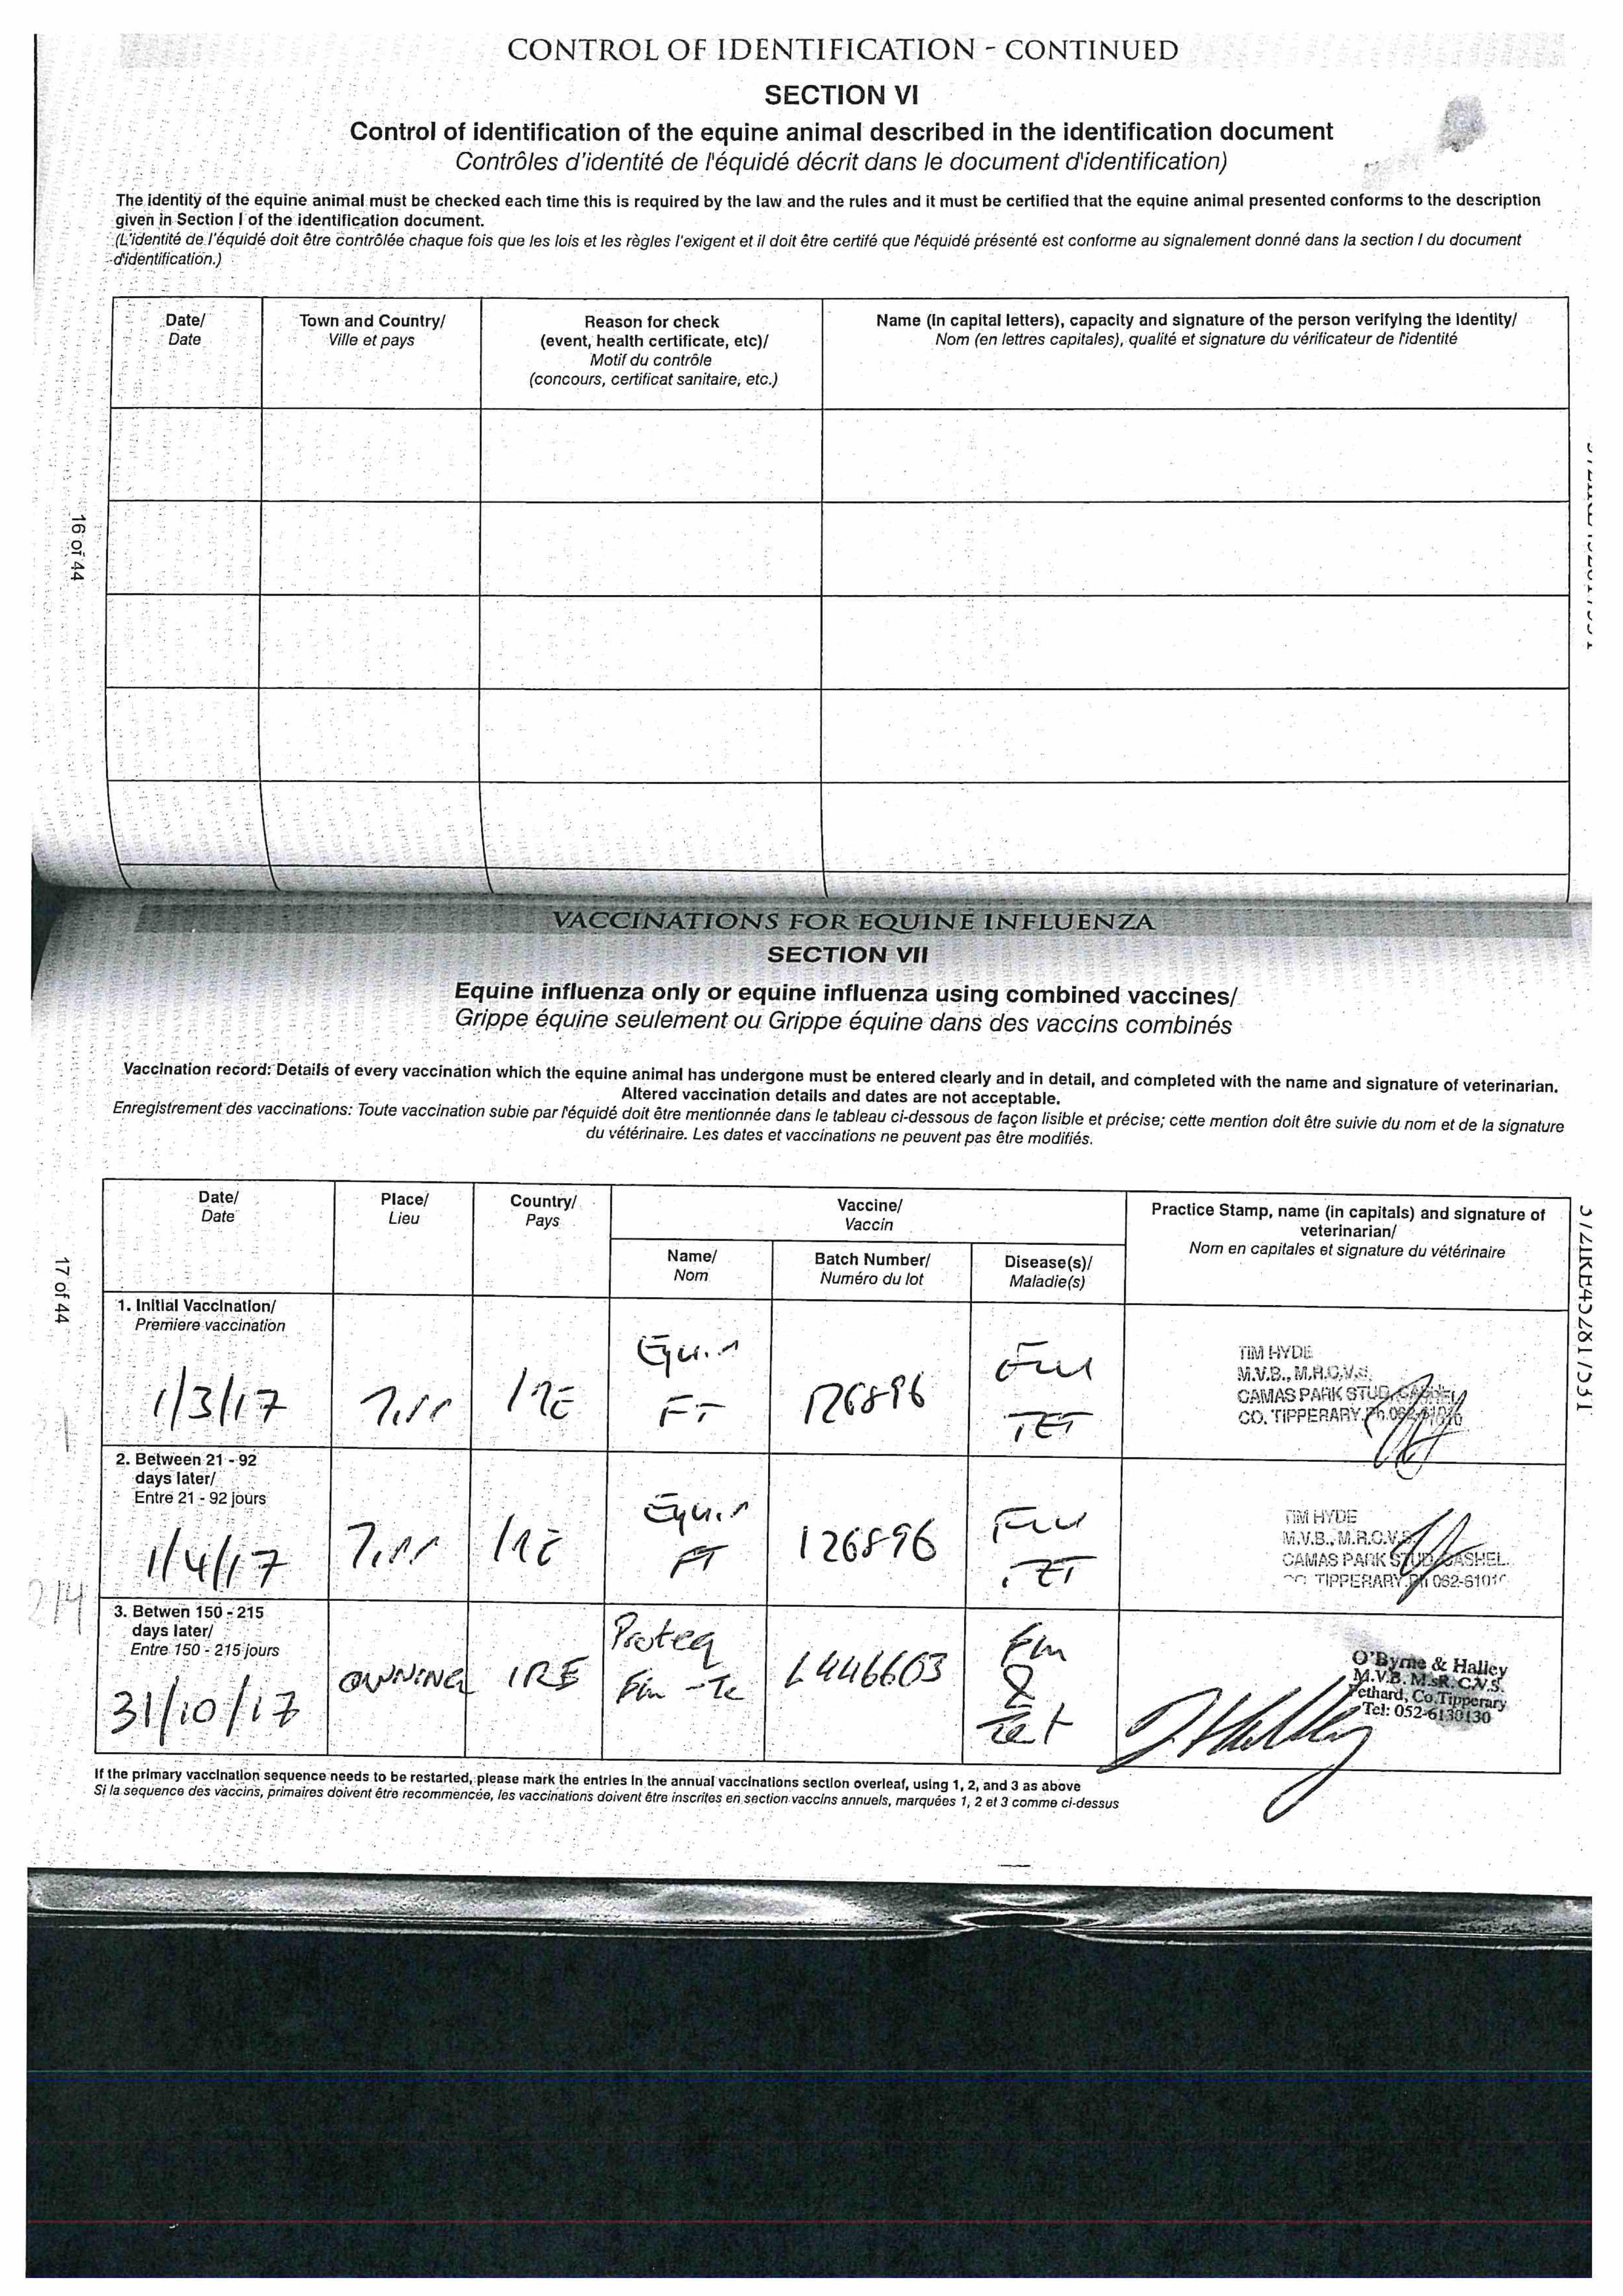 CONTROL OF IDENTIFICATION - CONTINUED
SECTION VI
Control of identification of the equine animal described in the identification document
Contrôles d'identité de l'équidé décrit dans le document d'identification)
The identity of the equine animal must be checked each time this is required by the law and the rules and it must be certified that the equine animal presented conforms to the description
given in Section I of the identification document.
(L'identité de l'équidé doit être contrôlée chaque fois que les lois et les règles l'exigent et il doit être certifé que l'équidé présenté est conforme au signalement donné dans la section I du document
d'identification.)
Date/
Date
Town and Country/
Ville et pays
Reason for check
(event, health certificate, etc)/
Motif du contrôle
(concours, certificat sanitaire, etc.)
Name (in capital letters), capacity and signature of the person verifying the identity/
Nom (en lettres capitales), qualité et signature du vérificateur de l'identité
16 of 44
VACCINATIONS FOR EQUINE INFLUENZA
SECTION VII
Equine influenza only or equine influenza using combined vaccines/
Grippe équine seulement ou Grippe équine dans des vaccins combinés
Vaccination record: Details of every vaccination which the equine animal has undergone must be entered clearly and in detail, and completed with the name and signature of veterinarian.
Altered vaccination details and dates are not acceptable.
Enregistrement des vaccinations: Toute vaccination subie par l'équidé doit être mentionnée dans le tableau ci-dessous de façon lisible et précise; cette mention doit être suivie du nom et de la signature
du vétérinaire. Les dates et vaccinations ne peuvent pas être modifiés.
Date/
Date
Place/
Lieu
Country/
Pays
Vaccine/
Vaccin
Name/
Nom
Batch Number/
Numéro du lot
Disease(s)/
Maladie(s)
Practice Stamp, name (in capitals) and signature of
veterinarian/
Nom en capitales et signature du vétérinaire
17 of 44
1. Initial Vaccination/
Premiere vaccination
1/3/17
IRE
Equip
FT
126896
Flu
TET
TIM HYDE
M.V.B., M.R.C.V.S.
CAMAS PARK STUD, CASHEL
CO. TIPPERARY. Ph 062-61010
2. Between 21 - 92
days later/
Entre 21 - 92 jours
1/4/17
IRE
Equip
FT
126896
Flu
TET
TIM HYDE
M.V.B., M.R.C.V.S.
CAMAS PARK STUD, CASHEL
CO. TIPPERARY Ph 062-61010
214
3. Betwen 150 - 215
days later/
Entre 150 - 215 jours
31/10/17
OWNING
IRE
Proteq
Flu - Te
L446603
Flu
&
Tet
O'Byrne & Halley
M.V.B. M.sR.C.V.S.
Fethard, Co.Tipperary
Tel: 052-6130130
If the primary vaccination sequence needs to be restarted, please mark the entries in the annual vaccinations section overleaf, using 1, 2, and 3 as above
Si la sequence des vaccins, primaires doivent être recommencée, les vaccinations doivent être inscrites en section vaccins annuels, marquées 1, 2 et 3 comme ci-dessus